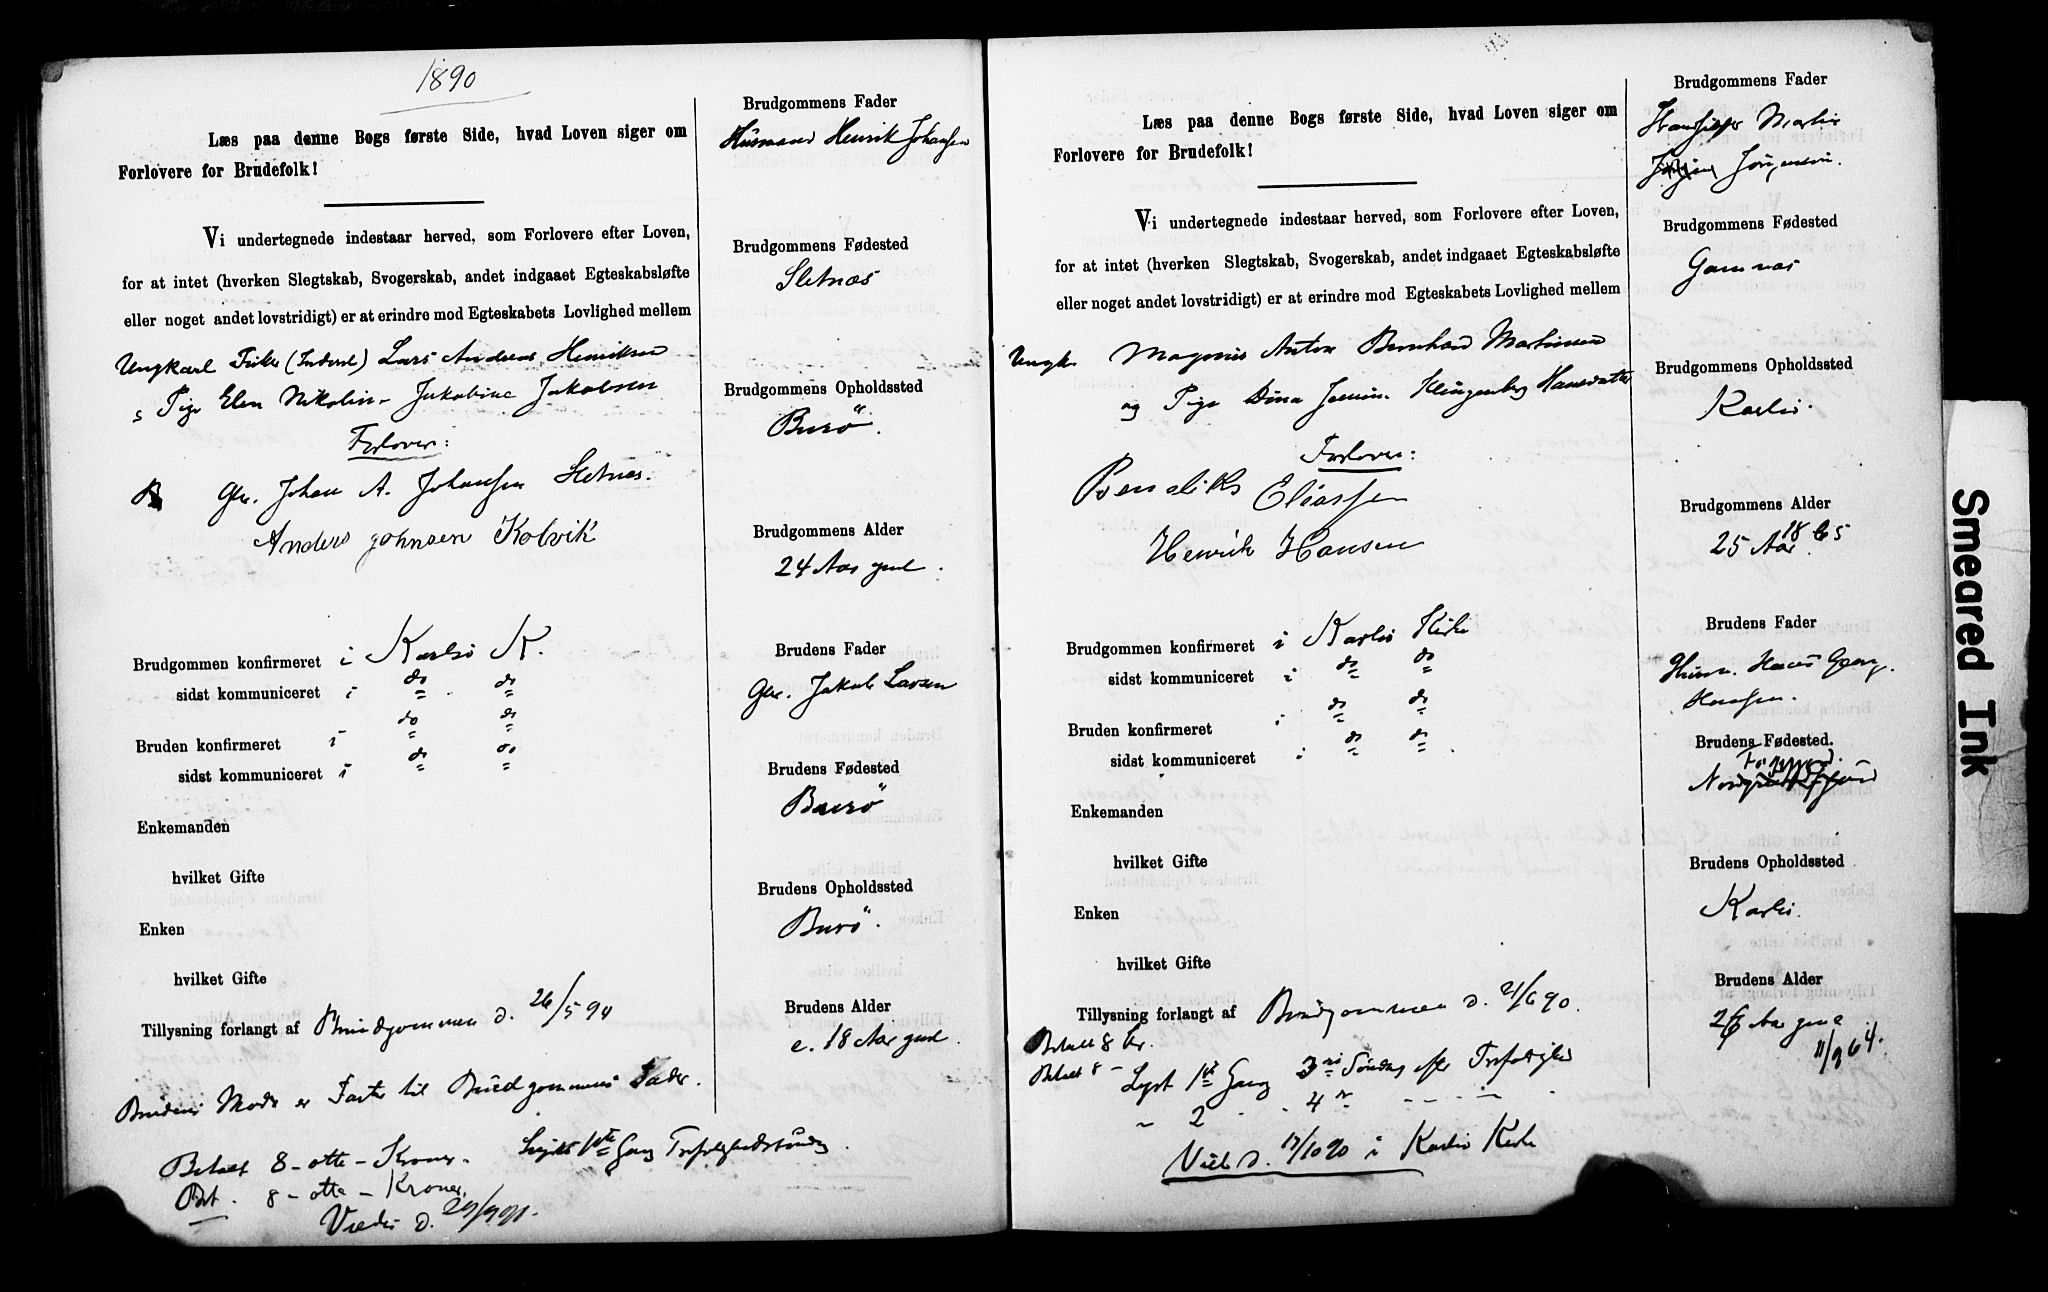 1890
Læs paa denne Bogs første Side, hvad Loven siger om
Forlovere for Brudefolk!
Vi undertegnede indestaar herved, som Forlovere efter Loven,
for at intet (hverken Slegtskab, Svogerskab, andet indgaaet Egteskabsløfte
eller noget andet lovstridigt) er at erindre mod Egteskabets Lovlighed mellem
Ungkarl Lars Andreas Henriksen
Pige Elen Nikoline Jakobine Jakobsen
Forlover:
Gbr. Johan A. Johansen Sletnæs.
Anders Johnsen Kolvik
Brudgommen konfirmeret i Karlsø K.
sidst kommuniceret i do do
Bruden konfirmeret i do do
sidst kommuniceret i do do
Enkemanden
hvilket Gifte
Enken
hvilket Gifte
Tillysning forlangt af Brudgommen d. 26/5 90
Brudens Moder er Faster til Brudgommens Fader.
Betalt 8 - otte - Kroner. Lyst 1ste Gang Trefoldighedssøndag.
Bet. 8 - otte - Kroner.
Viede d.
Brudgommens Fader
Husmand Henrik Johansen
Brudgommens Fødested
Sletnæs
Brudgommens Opholdssted
Burø.
Brudgommens Alder
24 Aar gml.
Brudens Fader
Gbr. Jakob Larsen
Brudens Fødested
Burø
Brudens Opholdssted
Burø.
Brudens Alder
c. 18 Aar gml.
Læs paa denne Bogs første Side, hvad Loven siger om
Forlovere for Brudefolk!
Vi undertegnede indestaar herved, som Forlovere efter Loven,
for at intet (hverken Slegtskab, Svogerskab, andet indgaaet Egteskabsløfte
eller noget andet lovstridigt) er at erindre mod Egteskabets Lovlighed mellem
Ungk. Magnus Anton Bernhard Martinsen
og Pige Dina Klingenberg Hansdatter
Forlover:
Bendiks Eliassen
Henrik Hansen
Brudgommen konfirmeret i Karlsø Kirke
sidst kommuniceret i do do
Bruden konfirmeret i do do
sidst kommuniceret i do do
Enkemanden
hvilket Gifte
Enken
hvilket Gifte
Tillysning forlangt af Brudgommen d. 21/6 90.
Betalt 8 Kr.
Betalt 8 - Lyst 1ste Gang 3die Søndag efter Trefoldighed
" 2 " 4de
Viet d. 17/10 90 i Karlsø Kirke
Brudgommens Fader
Martin
Jørgensen.
Brudgommens Fødested
Gamnæs
Brudgommens Opholdssted
Karlsø.
Brudgommens Alder
25 Aar. 1865
Brudens Fader
Husm. Hans Georg
Hansen.
Brudens Fødested.
Brudens Opholdssted
Karlsø.
Brudens Alder
26 Aar gml.
11/9 64.
Smeared Ink